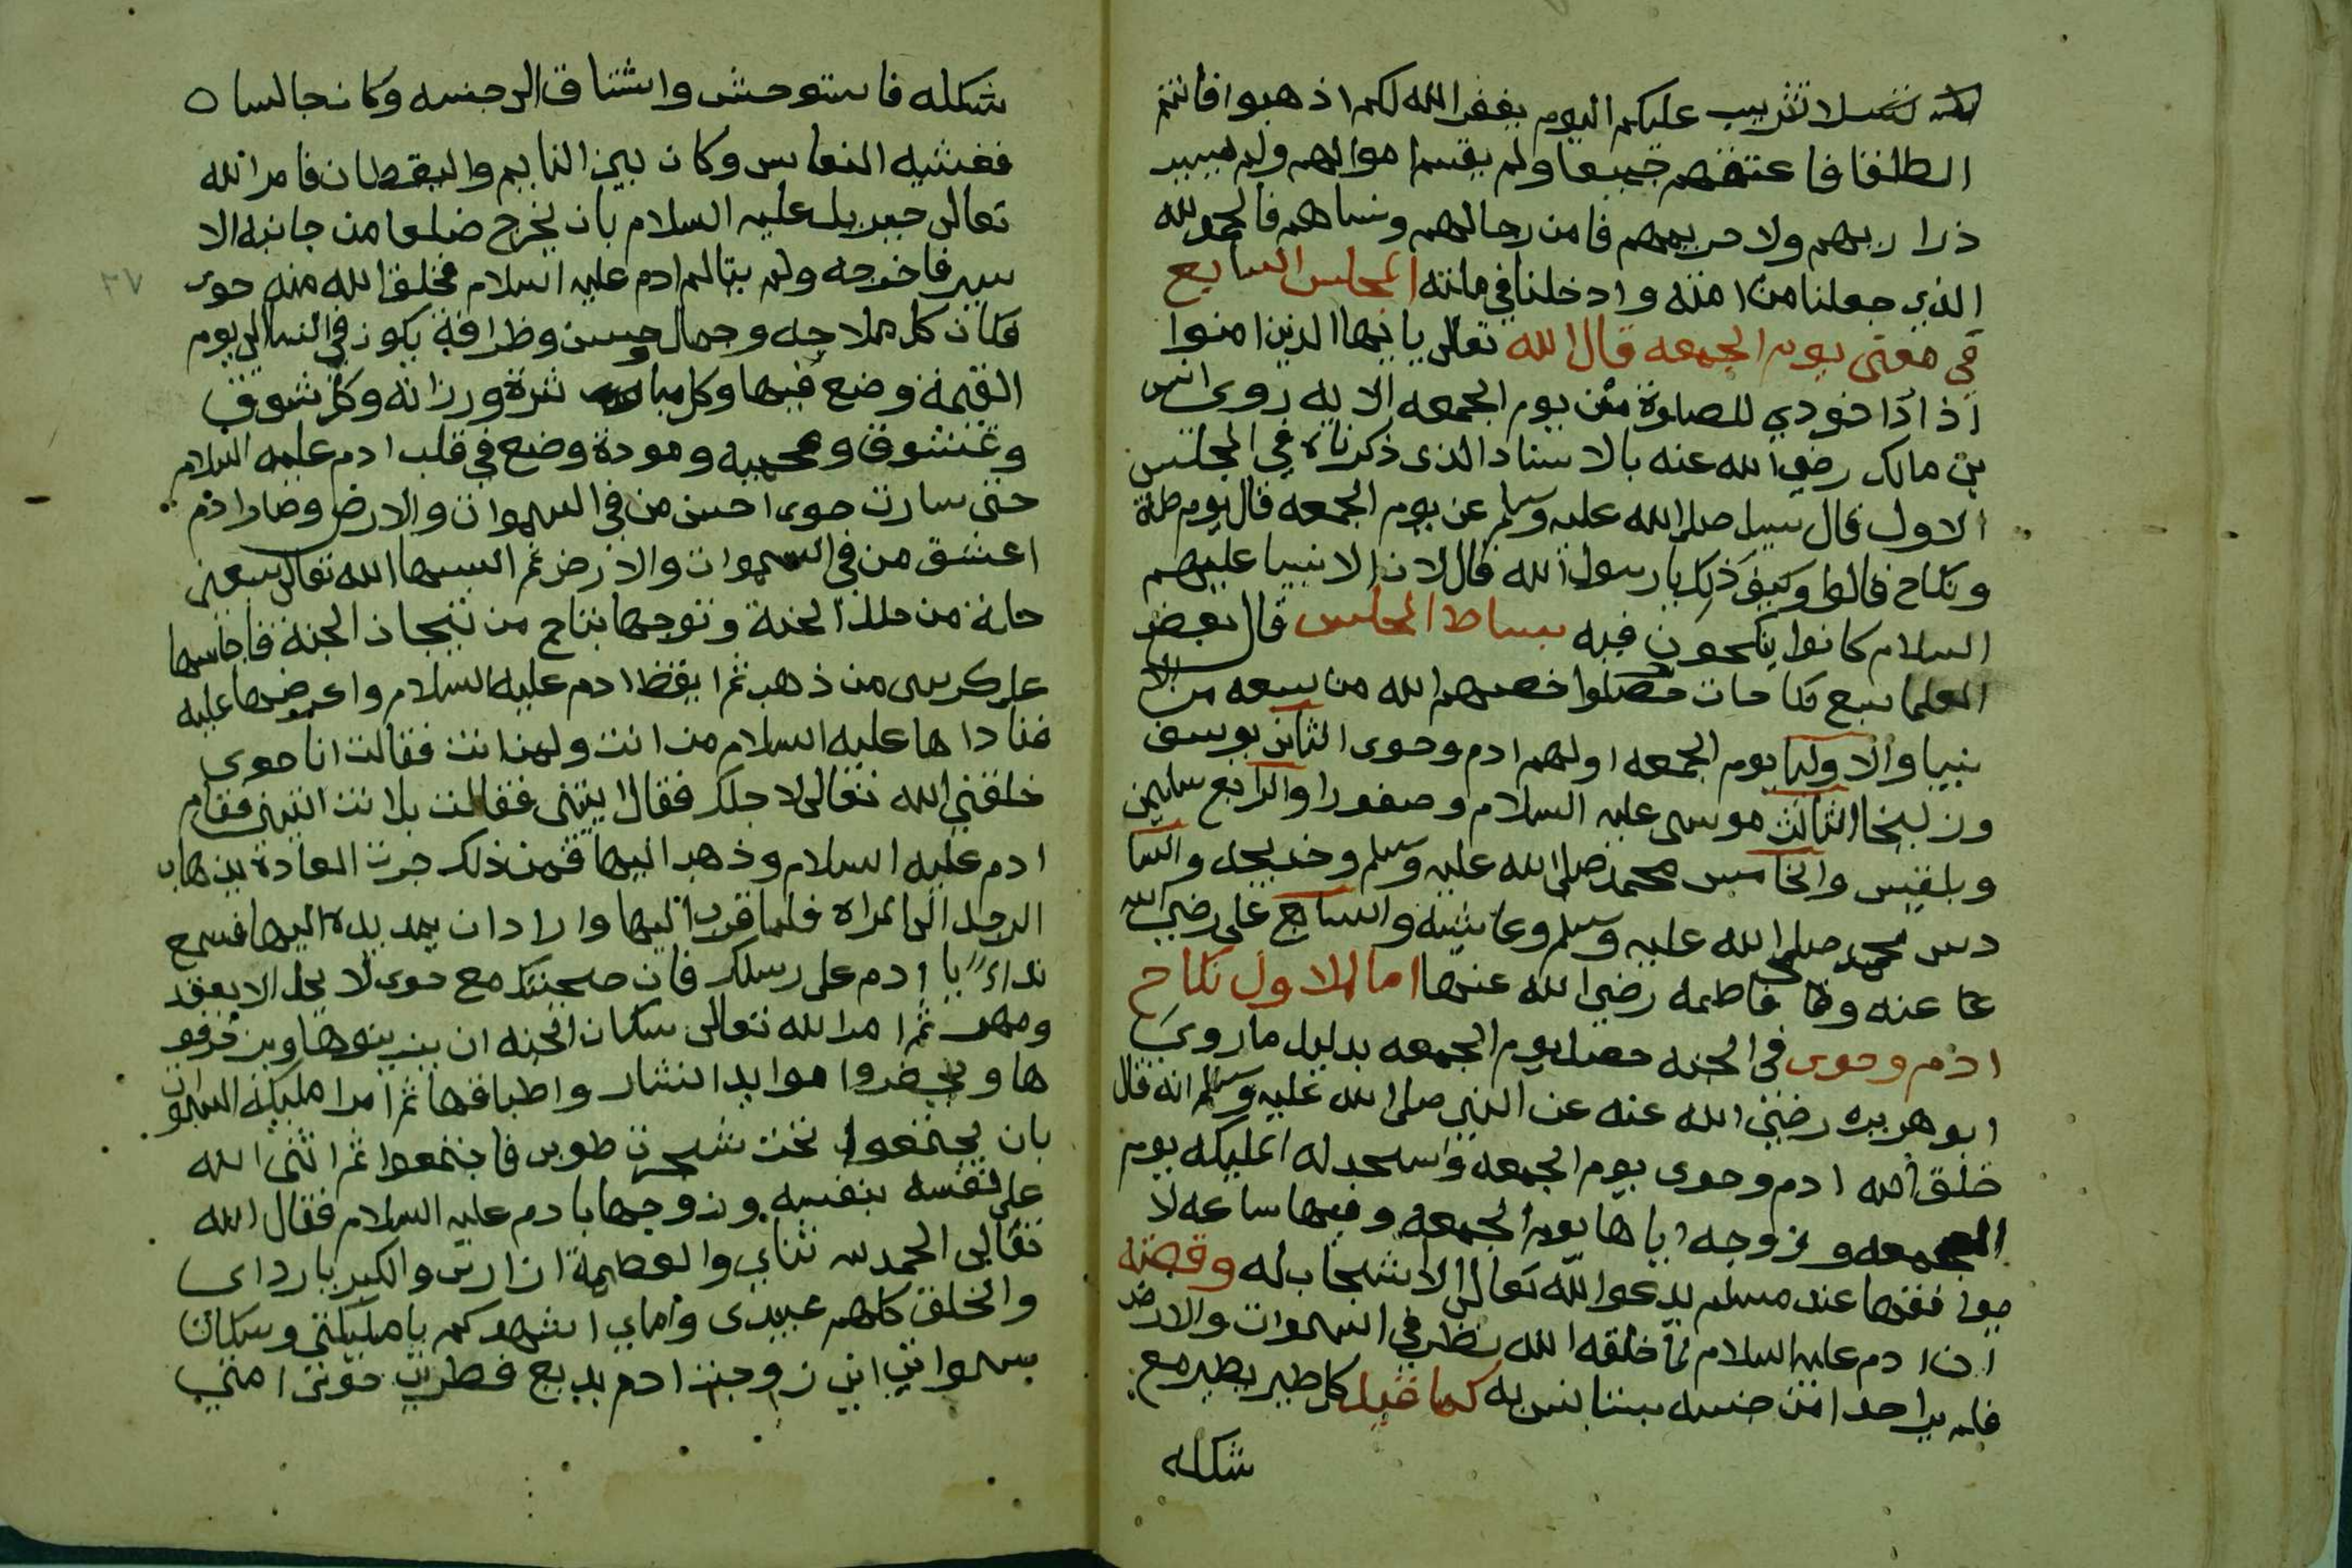 لا تثريب عليكم اليوم يغفر الله لكم اذهبوا فانتم
الطلقا فاعتقهم جميعا ولم يقسم اموالهم ولم يسير
ذراريهم ولا حريمهم فامن رجالهم ونساهم فالحمد لله
الذي جعلنا من امته وادخلنا في ملته المجلس السابع
في معنى يوم الجمعه قال الله تعالى يا ايها الذين امنوا
اذا نودي للصلوة من يوم الجمعه الايه روى انس
بن مالك رضي الله عنه بالاسناد الذى ذكرناه في المجلس
الاول قال سيل صلى الله عليه وسلم عن يوم الجمعه قال يوم صلة
ونكاح قالوا وكيف ذلك يا رسول الله قال لان الانبيا عليهم
السلام كانوا ينكحون فيه بساط المجلس قال بعض
العلما سبع نكاحات حصلوا خصهم الله من سبعه من الا
نبيا والاوليا يوم الجمعه اولهم ادم وحوى الثانى يوسف
وزليخا الثالث موسى عليه السلام وصفورا والرابع سليمن
وبلقيس والخامس محمد صلى الله عليه وسلم وخديجه والسا
دس محمد صلى الله عليه وسلم وعايشة والسابع على رضي الله
عنه فاطمه رضي الله عنها اما الاول نكاح
ادم وحوى في الجنه حصل يوم الجمعه بدليل ما روى
ابو هريره رضي الله عنه عن النبي صلى الله عليه وسلم انه قال
خلق الله ادم وحوى يوم الجمعه واسجد له المليكه يوم
الجمعه وزوجه اياها يوم الجمعه وفيها ساعه لا
عند مسلم يدعوا الله تعالى الا استجاب له وقصته
ان ادم عليه السلام لما خلقه الله نظر في السموات والارض
فلم ير احدا من جنسه يستانس به كما قيل كل طير يطير مع
شكله
شكله فاستوحش واشتاق الى جنسه وكان جالسا ه
فغشيه النعاس وكان بين النايم واليقظان فامر الله
تعالى جبريل عليه السلام بان يخرج ضلعا من جانبه الا
يسر فاخرجه ولم يتالم ادم عليه السلام فخلق الله منه حوى
فكان كل ملاحه وجمال وحسن وظرافة يكون في النسا الى يوم
القيمة وضع فيها وكل ورزانه وكل شوق
وعشوق ومحبه ومودة وضع في قلب ادم عليه السلام
حتى سارت حوى احسن من في السموات والارض وصار ادم
اعشق من في السموات والارض ثم البسها الله تعالى سبعين
حلة من حلل الجنة وتوجها بتاج من تيجان الجنة فاجلسها
على كرسى من ذهب ثم ايقظ ادم عليه السلام واعرضها عليه
فناداها عليه السلام من انت ولمن انت فقالت انا حوى
خلقني الله تعالى لاجلك فقال ايتنى فقالت بل انت ائتينى فقام
ادم عليه السلام وذهب اليها فمن ذلك جرت العادة بذهاب
الرجل الى المراه فلما قرب اليها واراد ان يمد يده اليها فسمع
نداء يا ادم على رسلك فان صحبتك مع حوى لا يحل الا بعقد
ومهر ثم امر الله تعالى سكان الجنه ان يزينوها ويزخرفو
ها ويحضروا موايد النثار واطباقها ثم امر مليكة السموات
بان يجتمعوا تحت شجرت طوبى فاجتمعوا ثم اثنى الله
على نفسه بنفسه وزوجها بادم عليه السلام فقال الله
تعالى الحمد ثناي والعظمة ازارى والكبريا رداى
والخلق كلهم عبيدى واماي اشهدكم يا مليكتي وسكان
سمواتي اني زوجت ادم بديع فطرتى حوى امتي
٢٧